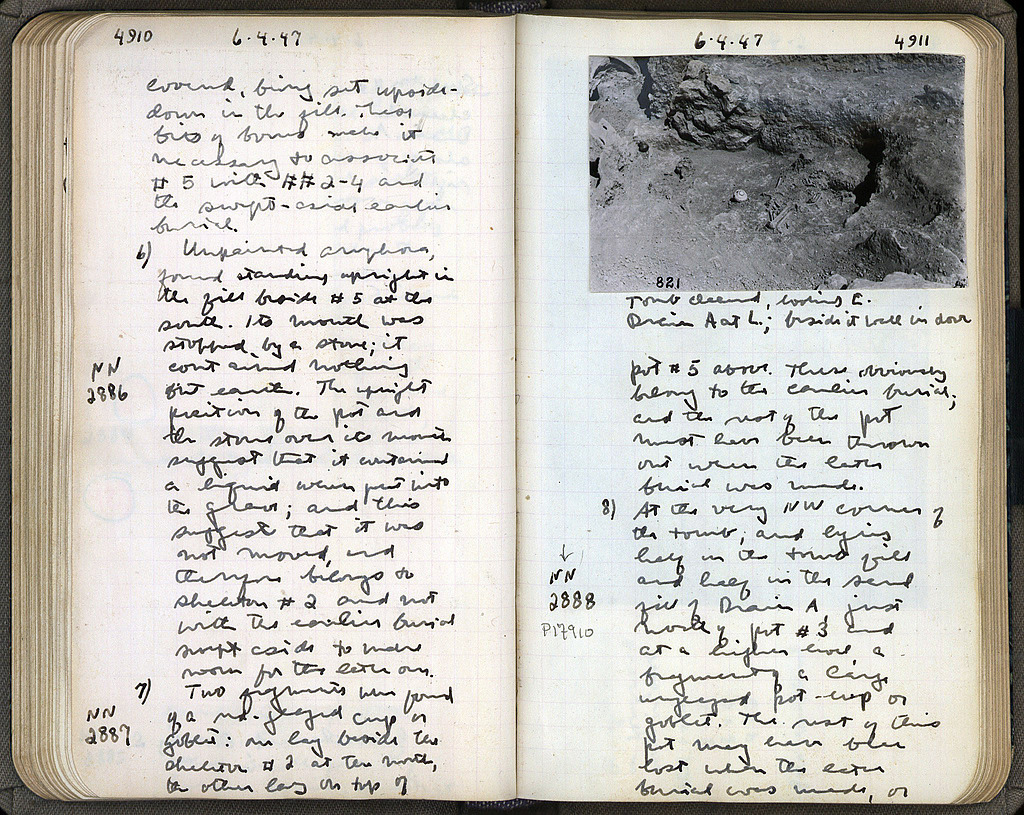 4910
6.4.47
covered, being set upside-
down in the fill. These
bits of bones make it
necessary to associate
# 5 with ## 2-4 and
the swept-aside earlier
burial.
6) Unpainted amphora,
found standing upright in
the fill beside # 5 at the
south. Its mouth was
stopped by a stone; it
contained nothing
but earth. The upright
position of the pot and
the stone over its mouth
suggest that it contained
a liquid when put into
the grave; and this
suggest that it was
not moved, and
therefore belongs to
skeleton # 2 and not
with the earlier burial
swept aside to make
room for the later one.
7) Two fragments were found
of a red-glazed cup or
goblet: one lay beside the
skeleton # 2 at the north,
the other lay on top of
NN
2886
NN
2887
6.4.47
4911
821
Tomb cleared, looking E.
Drain A at L.; beside it well in door
pot # 5 above. These obviously
belong to the earlier burial;
and the rest of the pot
must have been thrown
out when the later
burial was made.
8) At the very NW corner of
the tomb, and lying
half in the tomb fill
and half in the sand
fill of Drain A, just
north of pot # 3, and
at a higher level a
fragment of a large
unglazed pot-cup or
goblet. The rest of this
pot may have been
lost when the later
burial was made, or
↓
NN
2888
P17910